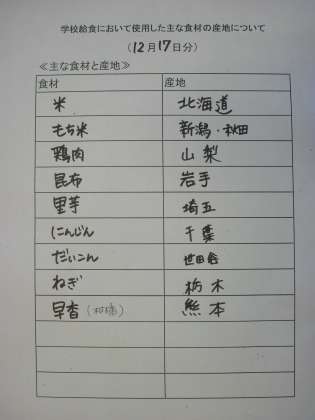 学校給食において使用した主な食材の産地について
(12月17日分)
≪主な食材と産地≫
食材 産地
米 北海道
もち米 新潟・秋田
鶏肉 山梨
昆布 岩手
里芋 埼玉
にんじん 千葉
だいこん 世田谷
ねぎ 栃木
早香(柑橘) 熊本